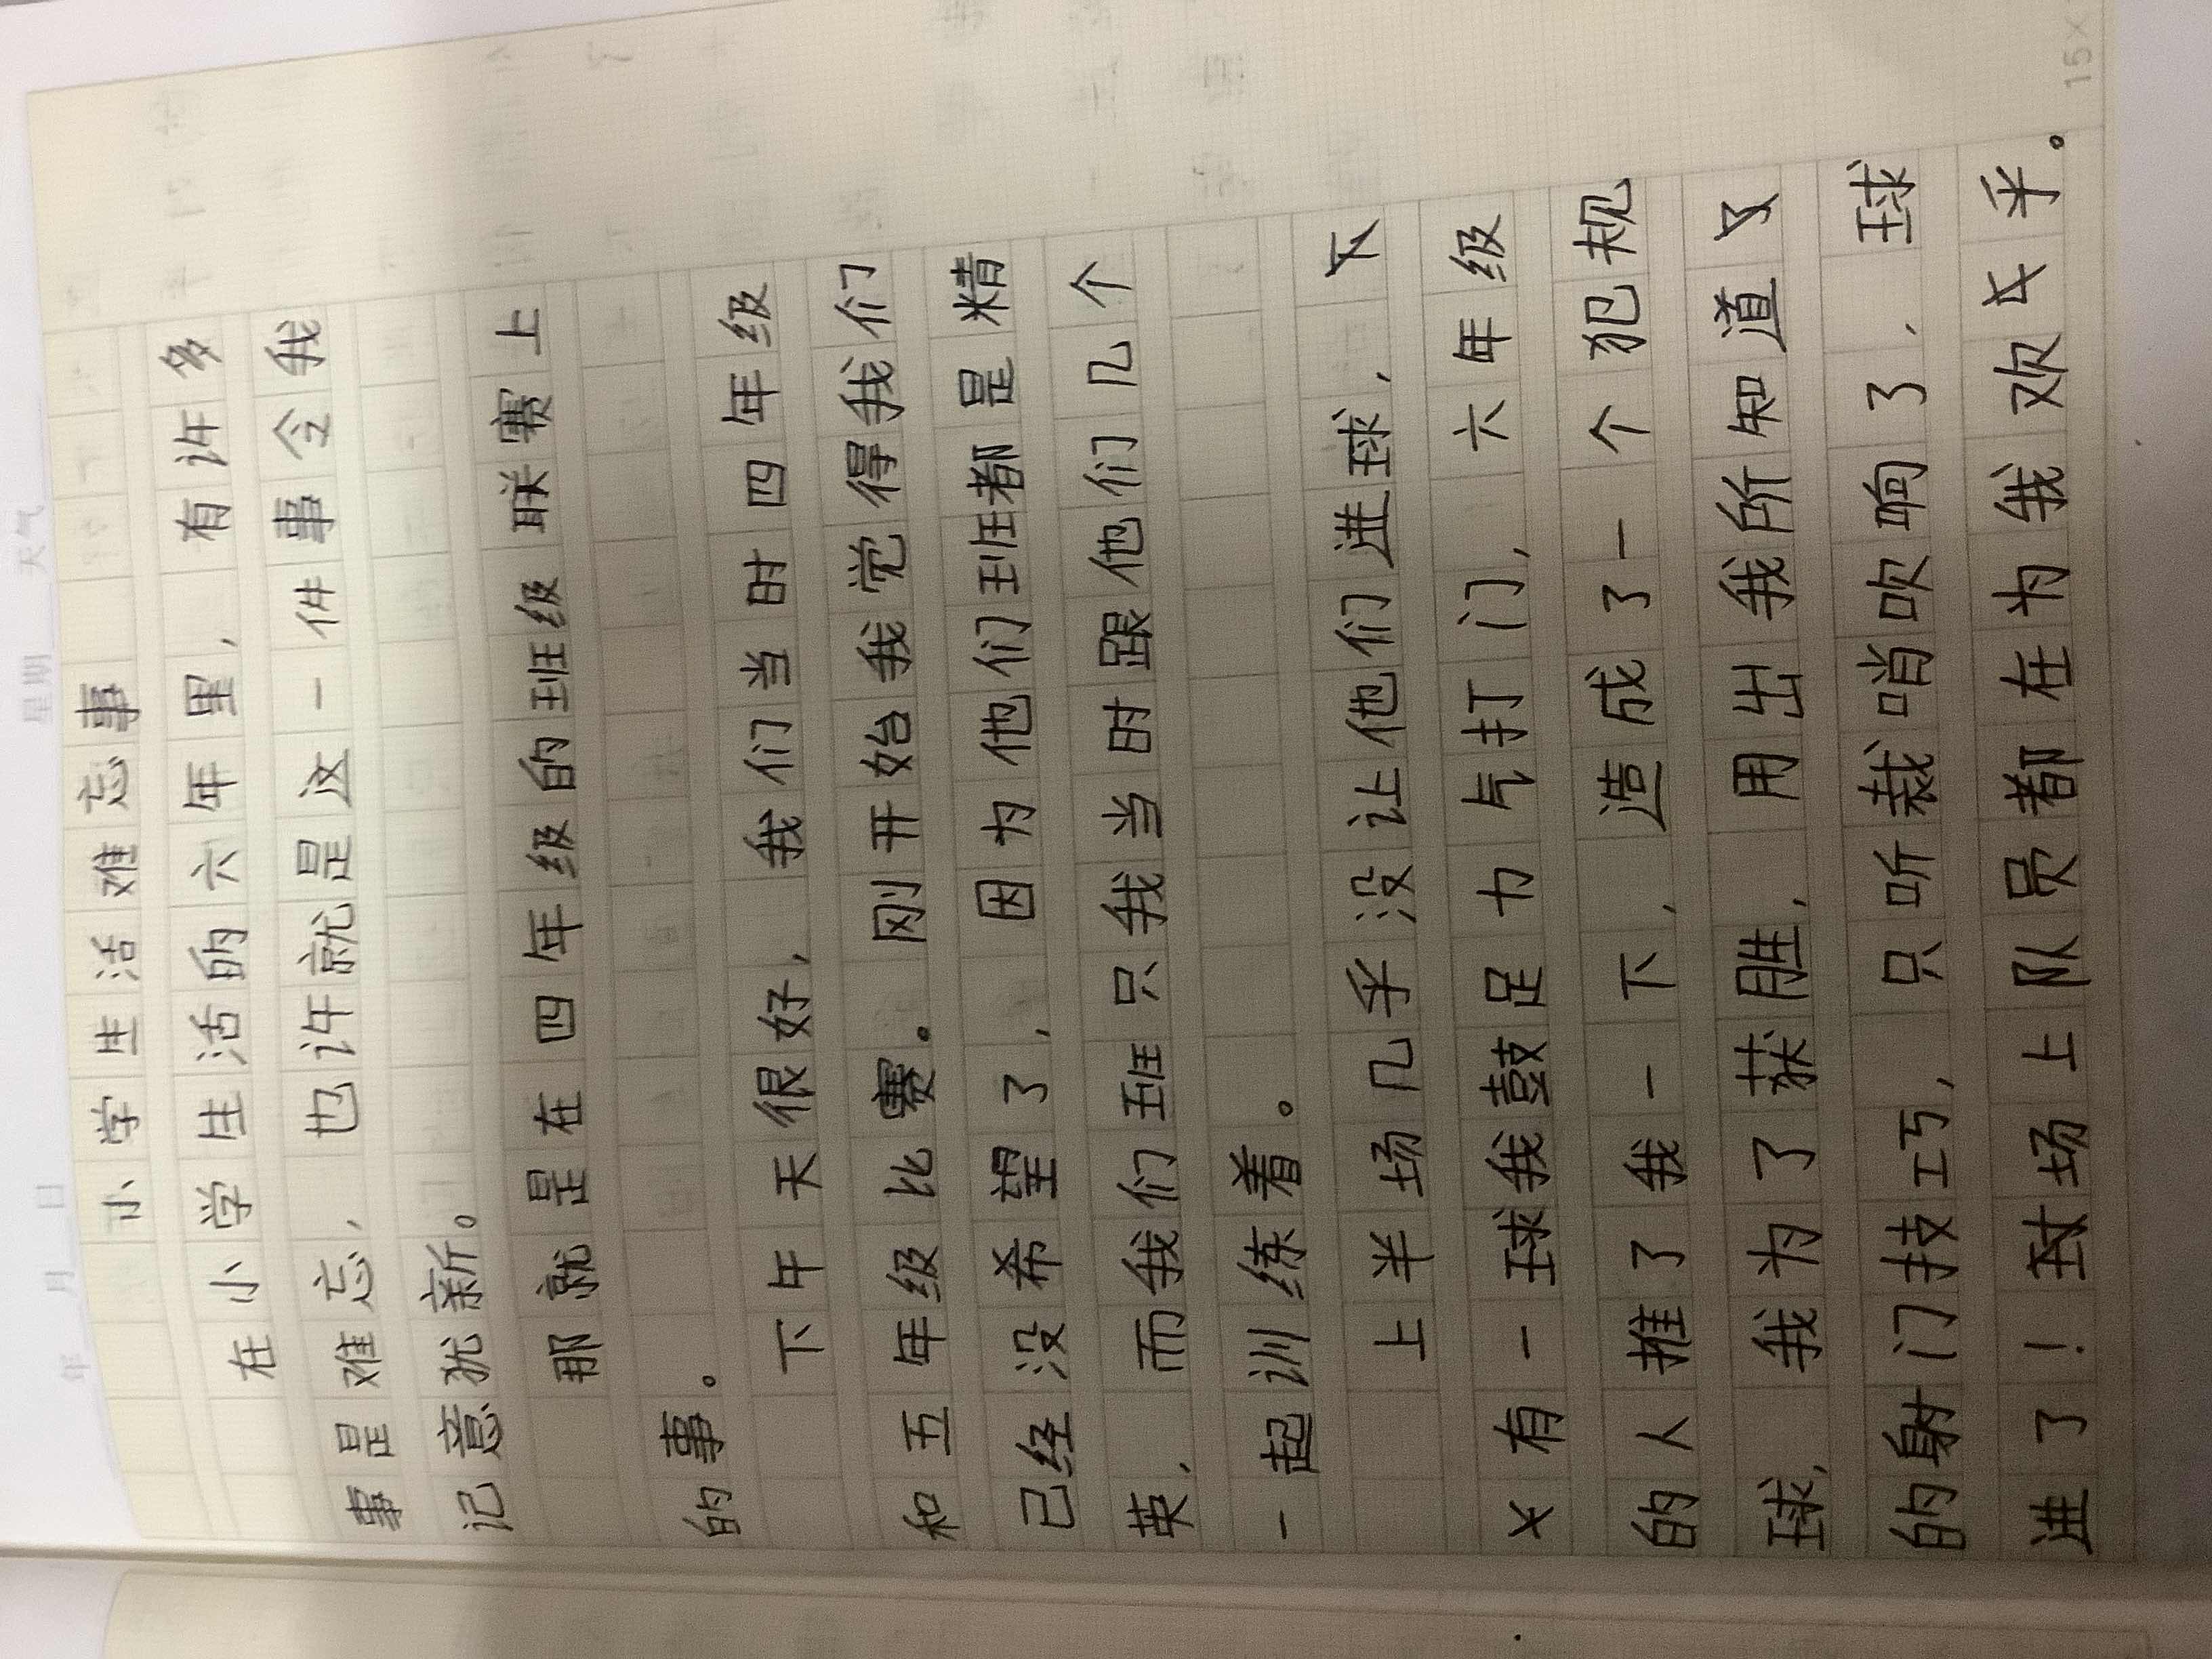 年 月 日 星期 天气
小学生活难忘事
在小学生活的六年里，有许多
事是难忘，也许就是这一件事令我
记意犹新。
那就是在四年级的班级联赛上
的事。
下午天很好，我们当时四年级
和五年级比赛。刚开始我觉得我们
已经没希望了，因为他们班都是精
英，而我们班只我当时跟他们几个
一起训练着。
上半场几乎没让他们进球，
有一球我鼓足力气打门，六年级
的人推了我一下，造成了一个犯规
球，我为了获胜，用出我所知道
的射门技巧，只听裁哨吹响了，球
进了！球场上队员都在为我欢乎。
15×